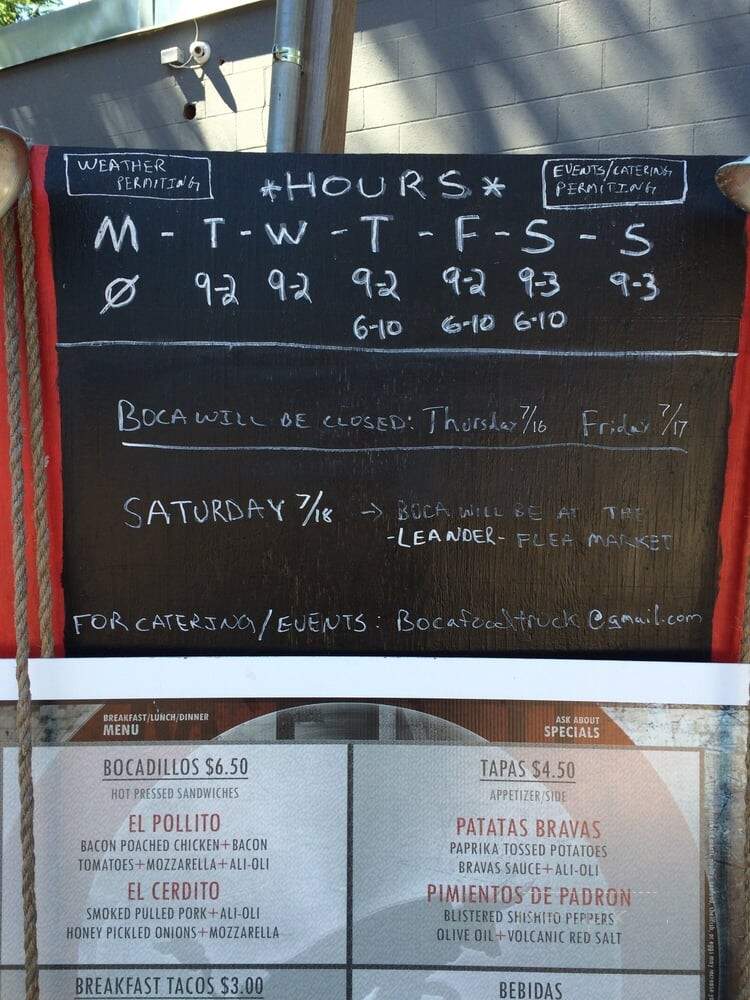 WEATHER
PERMITING
*HOURS*
EVENTS/CATERING
PERMITING
M - T - W - T - F - S - S
Ø 9-2 9-2 9-2 9-2 9-3 9-3
6-10 6-10 6-10
BOCA WILL BE CLOSED: Thursday 7/16 Friday 7/17
SATURDAY 7/18 → BOCA WILL BE AT THE
-LEANDER- FLEA MARKET
FOR CATERING/EVENTS: Bocafoodtruck@gmail.com
BREAKFAST/LUNCH/DINNER
MENU
ASK ABOUT
SPECIALS
BOCADILLOS $6.50
HOT PRESSED SANDWICHES
EL POLLITO
BACON POACHED CHICKEN+BACON
TOMATOES+MOZZARELLA+ALI-OLI
EL CERDITO
SMOKED PULLED PORK+ALI-OLI
HONEY PICKLED ONIONS+MOZZARELLA
BREAKFAST TACOS $3.00
TAPAS $4.50
APPETIZER/SIDE
PATATAS BRAVAS
PAPRIKA TOSSED POTATOES
BRAVAS SAUCE+ALI-OLI
PIMIENTOS DE PADRON
BLISTERED SHISHITO PEPPERS
OLIVE OIL+VOLCANIC RED SALT
BEBIDAS